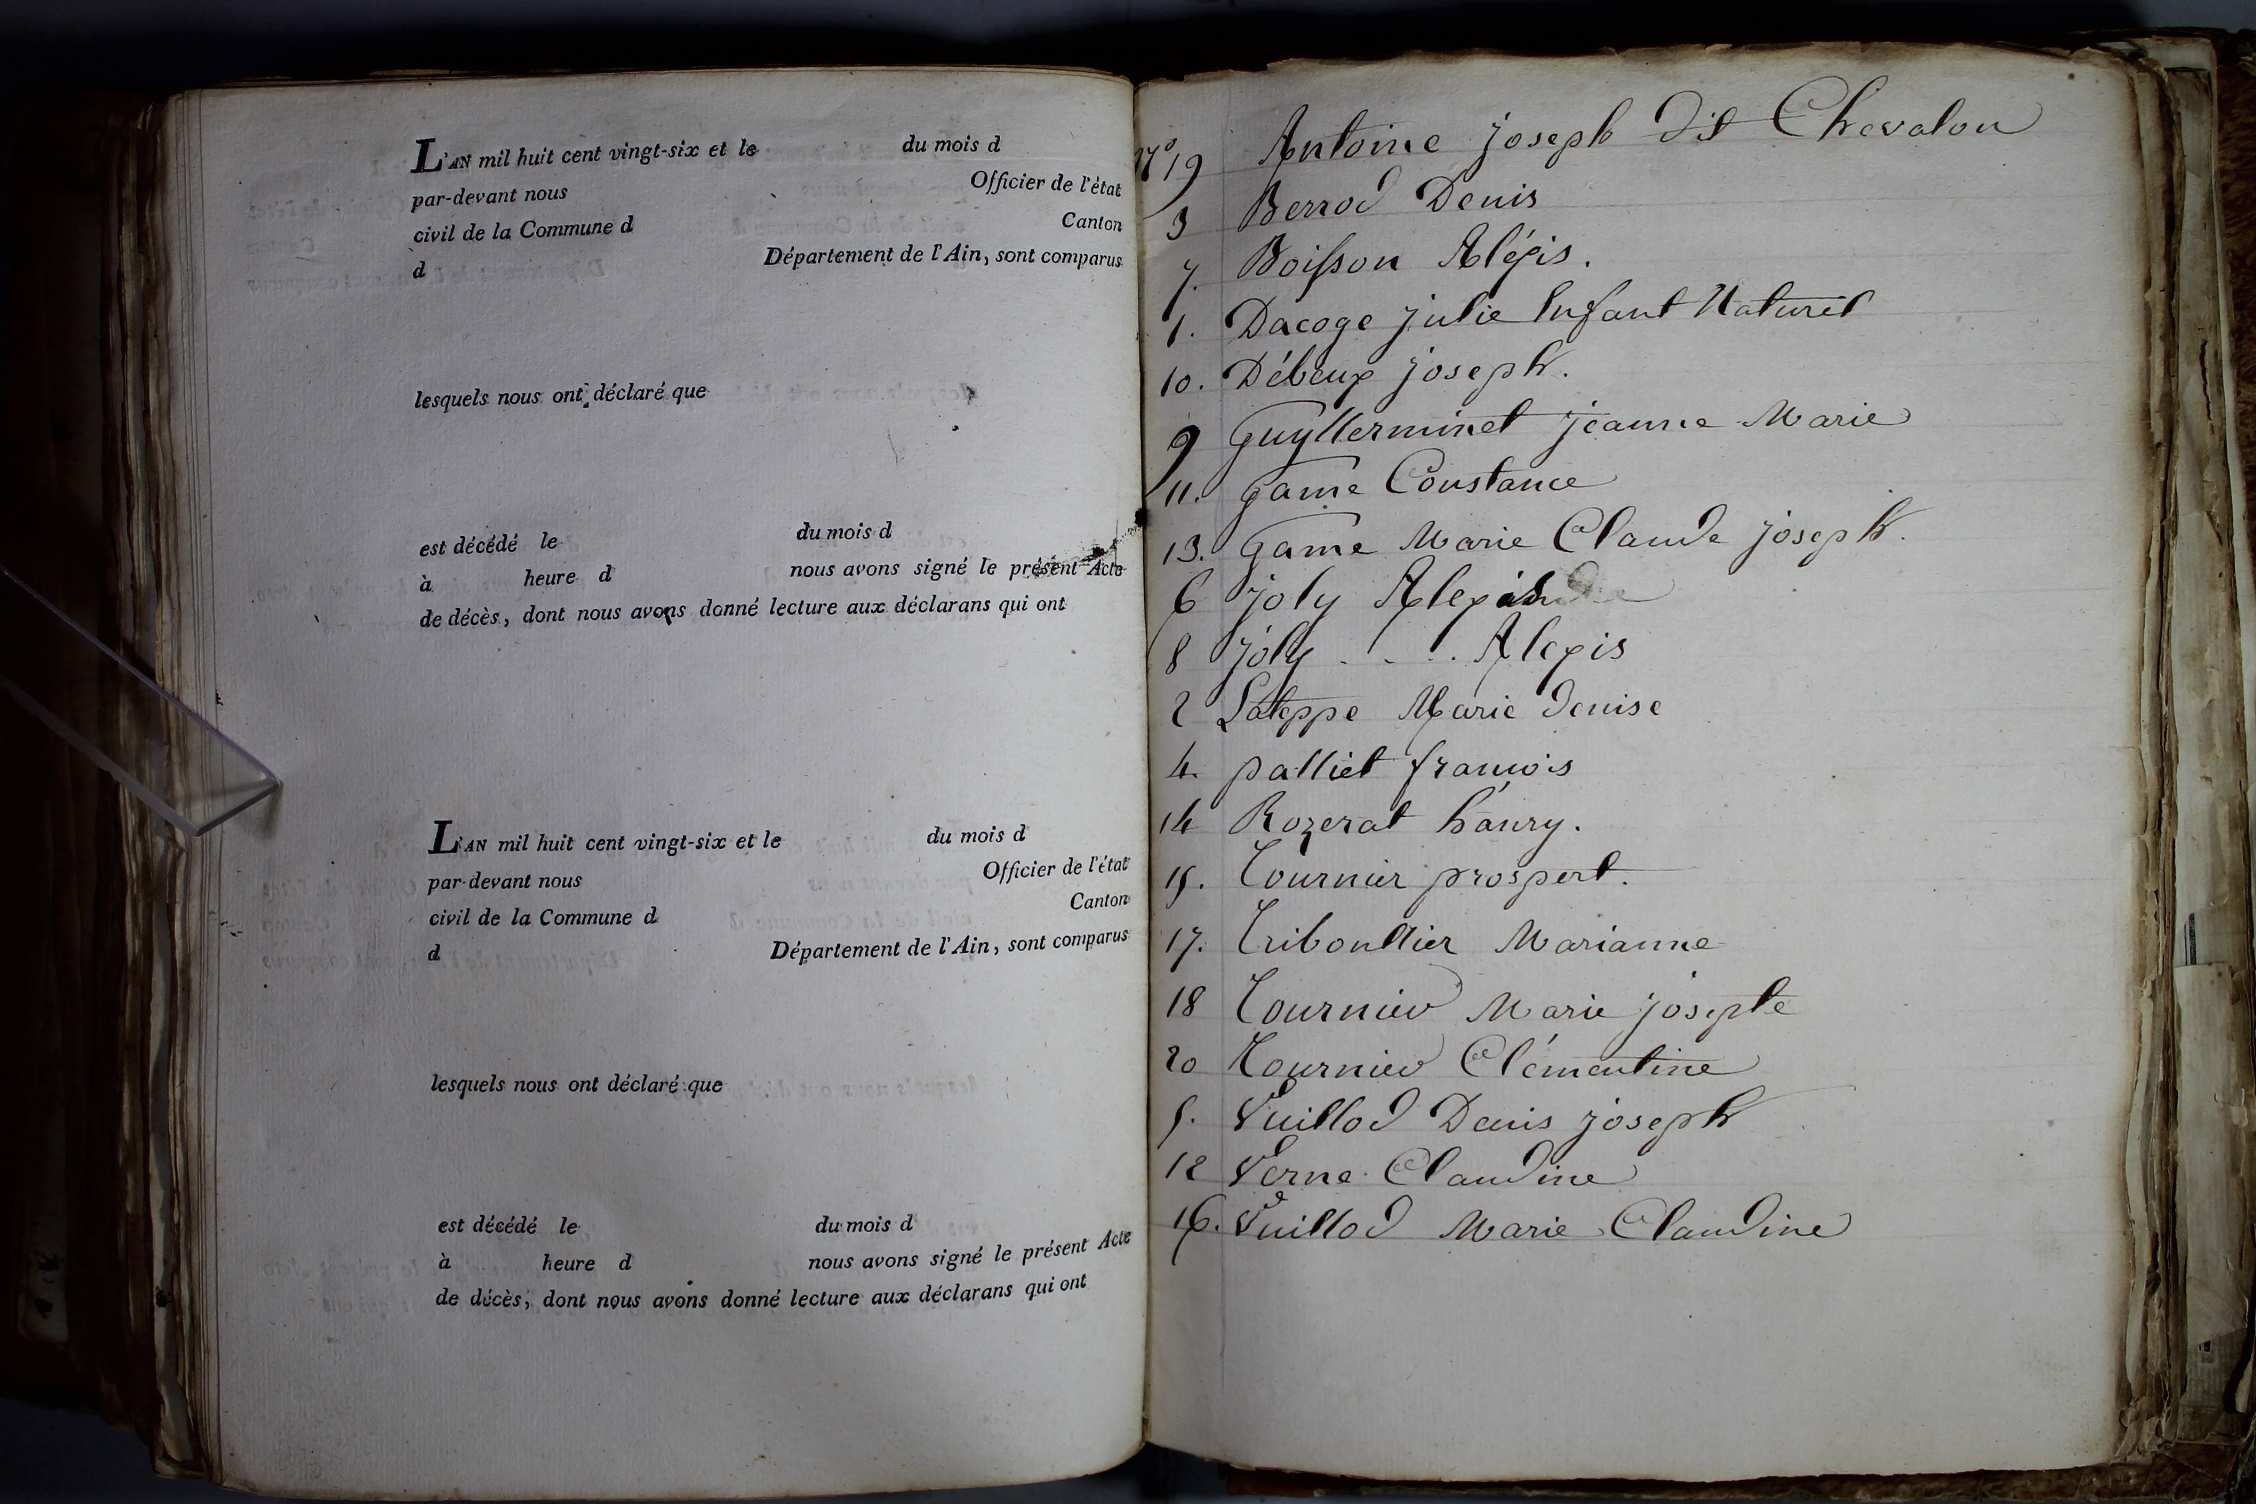 L'AN mil huit cent vingt-six et le du mois d
par-devant nous Officier de l'état
civil de la Commune d Canton
d Département de l'Ain, sont comparus
lesquels nous ont déclaré que
est décédé le du mois d
à heure d nous avons signé le présent Acte
de décès, dont nous avons donné lecture aux déclarans qui ont
L'AN mil huit cent vingt-six et le du mois d
par-devant nous Officier de l'état
civil de la Commune d Canton
d Département de l'Ain, sont comparus
lesquels nous ont déclaré que
est décédé le du mois d
à heure d nous avons signé le présent Acte
de décès, dont nous avons donné lecture aux déclarans qui ont
N° 19 Antoine joseph dit Chevalon
3 Berrod Denis
7. Boisson Aléxis.
1. Dacoge julie Enfant Naturel
10. Débeux joseph.
9 Guyllerminet jeanne Marie
11. Game Constance
13. Game Marie Claude joseph.
6 joly Alexis
8 joly . . . . Alexis
2 Lateppe Marie Denise
4. palliet françois
14 Rozerat hánry.
15. Tournier prospert.
17. Triboullier Marianne
18 Tournier Marie josephe
20 Tournier Clémentine
5. Vuillod Denis joseph
12 Verne Claudine
16. Vuillod Marie Claudine